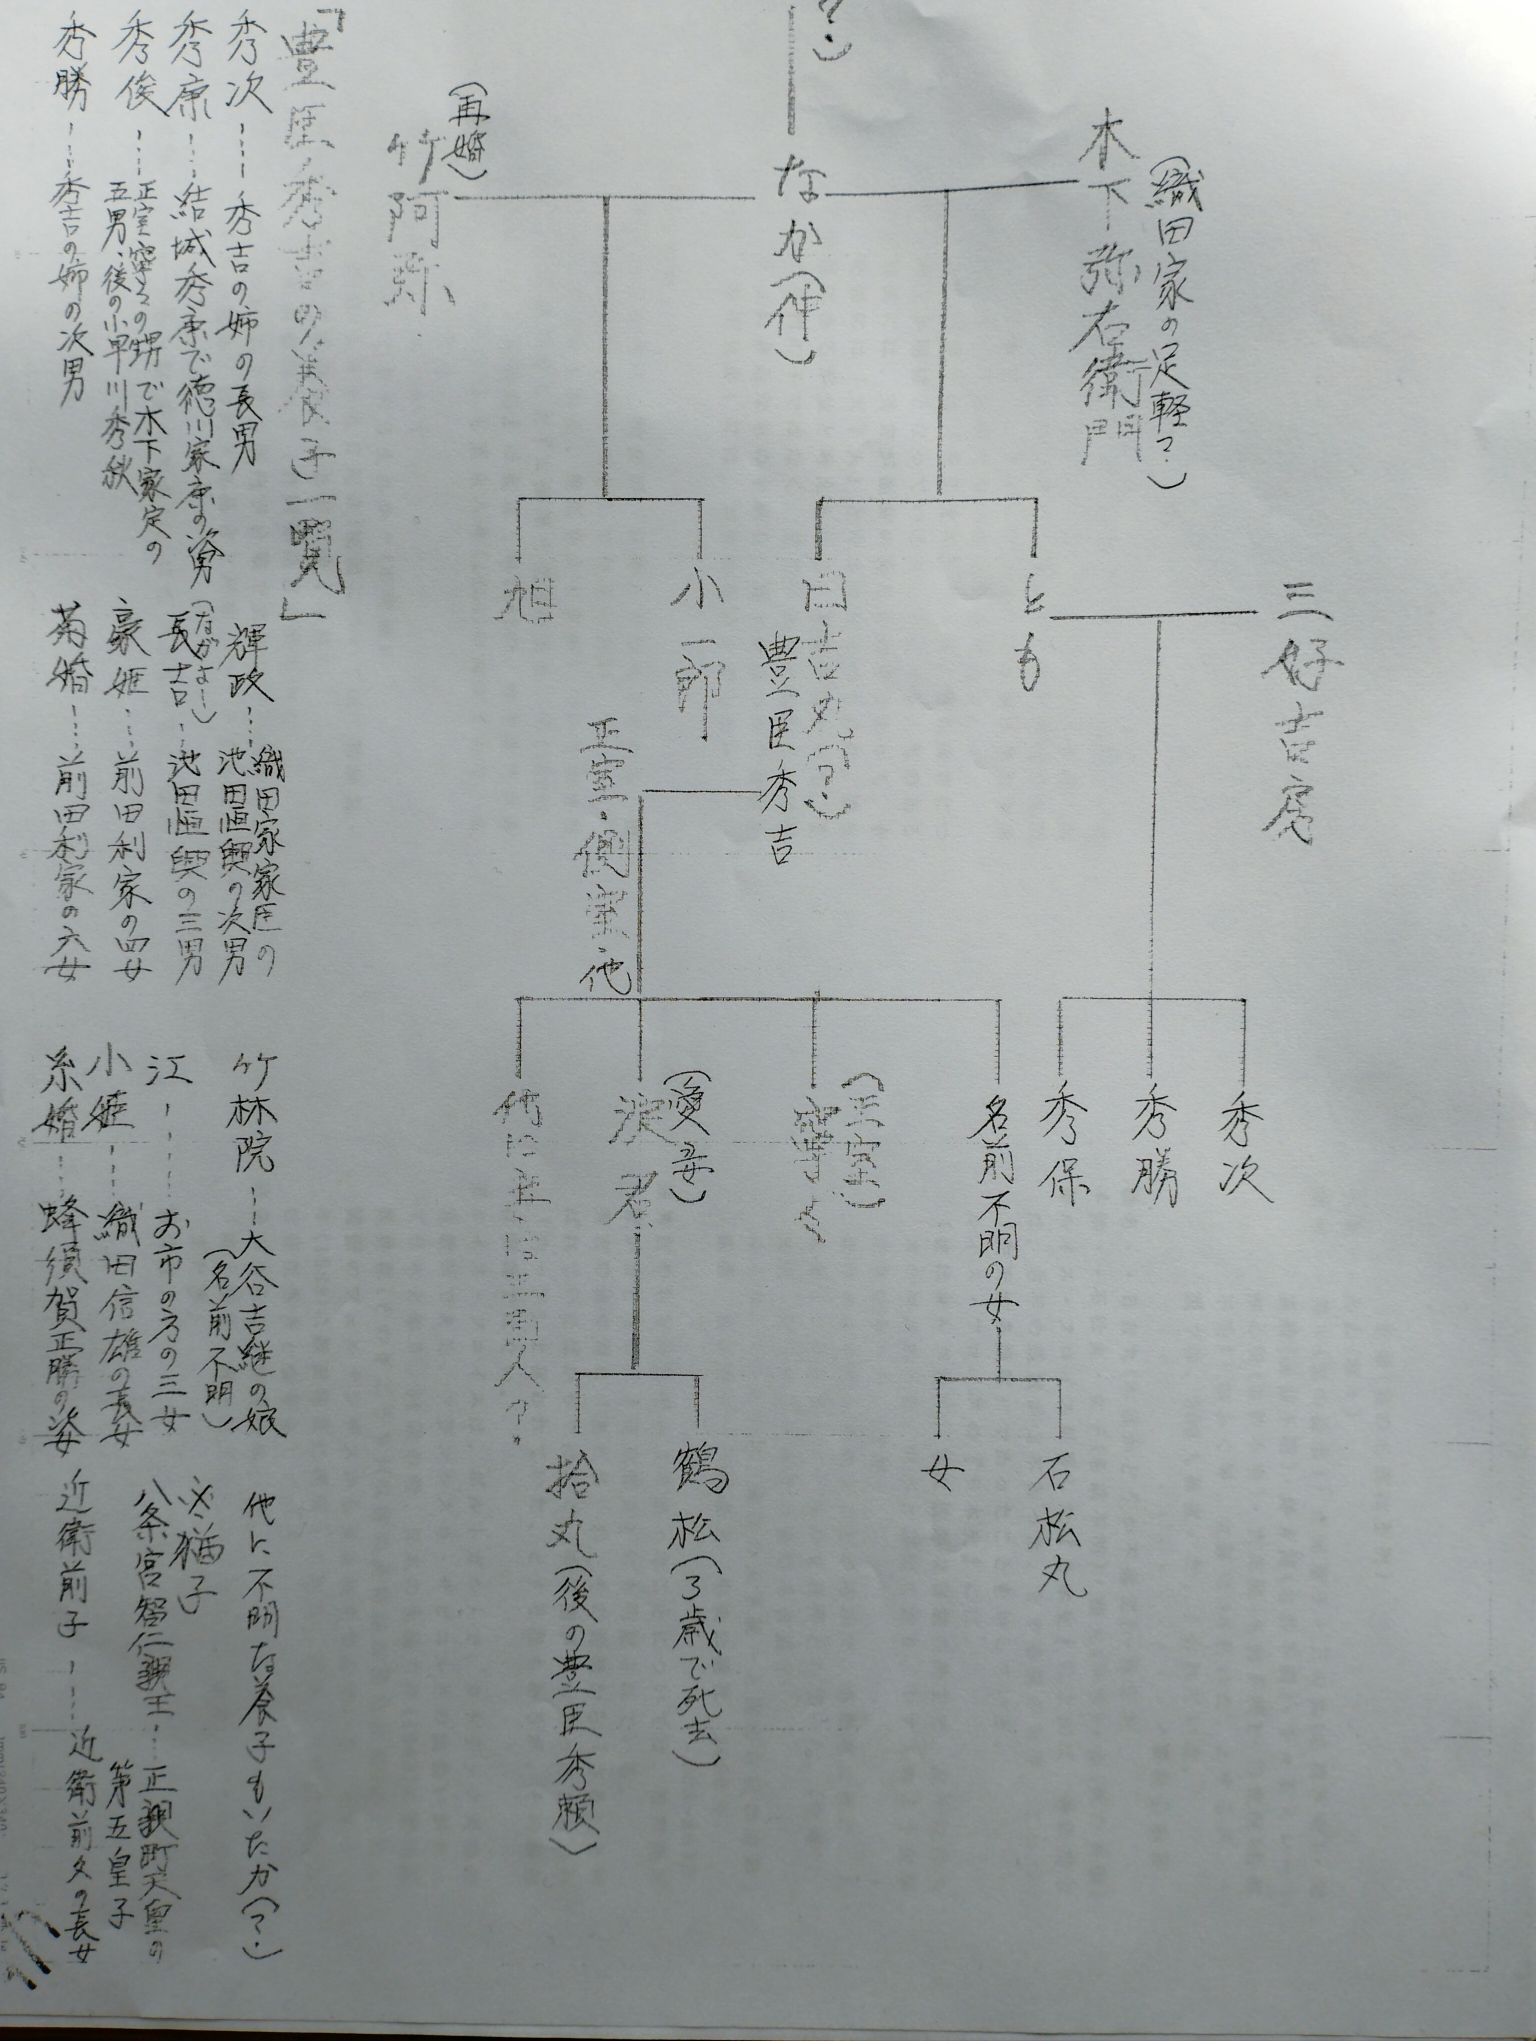 (織田家の足軽?)
木下弥右衛門
なか(仲)
(再婚)
竹阿弥
三好吉房
とも
日吉丸(?)
豊臣秀吉
小一郎
旭
正室・側室・他
秀次
秀勝
秀保
名前不明の女
(正室)
寧々
(愛妾)
淀君
石松丸
女
鶴松(3歳で死去)
拾丸(後の豊臣秀頼)
「豊臣秀吉の養子一覧」
秀次……秀吉の姉の長男
秀康……結城秀康で徳川家康の次男
秀俊……正室寧々の甥で木下家定の
五男、後の小早川秀秋
秀勝……秀吉の姉の次男
輝政……織田家家臣の
池田恒興の次男
(ながよし)
長吉…池田恒興の三男
豪姫……前田利家の四女
菊婚……前田利家の六女
竹林院…大谷吉継の娘
(名前不明)
江……お市の方の三女
小姫……織田信雄の長女
糸婚……蜂須賀正勝の姿
他に不明な養子もいたか(?)
※猶子
八条宮智仁親王……正親町天皇の
第五皇子
近衛前子……近衛前久の長女